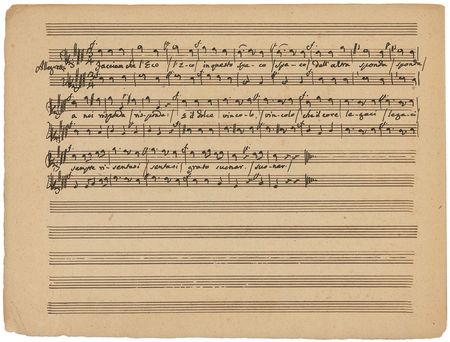 Allegretto facciam che l'Eco / l'E-co / in questo spe-co / spe-co / dall'altra sponda / sponda /
a noi risponda / risponda / E il dolce vinco-lo / vincolo / che il core le-gaci / legaci
sempre ri-sentasi / sentasi / grato suonar / suonar /